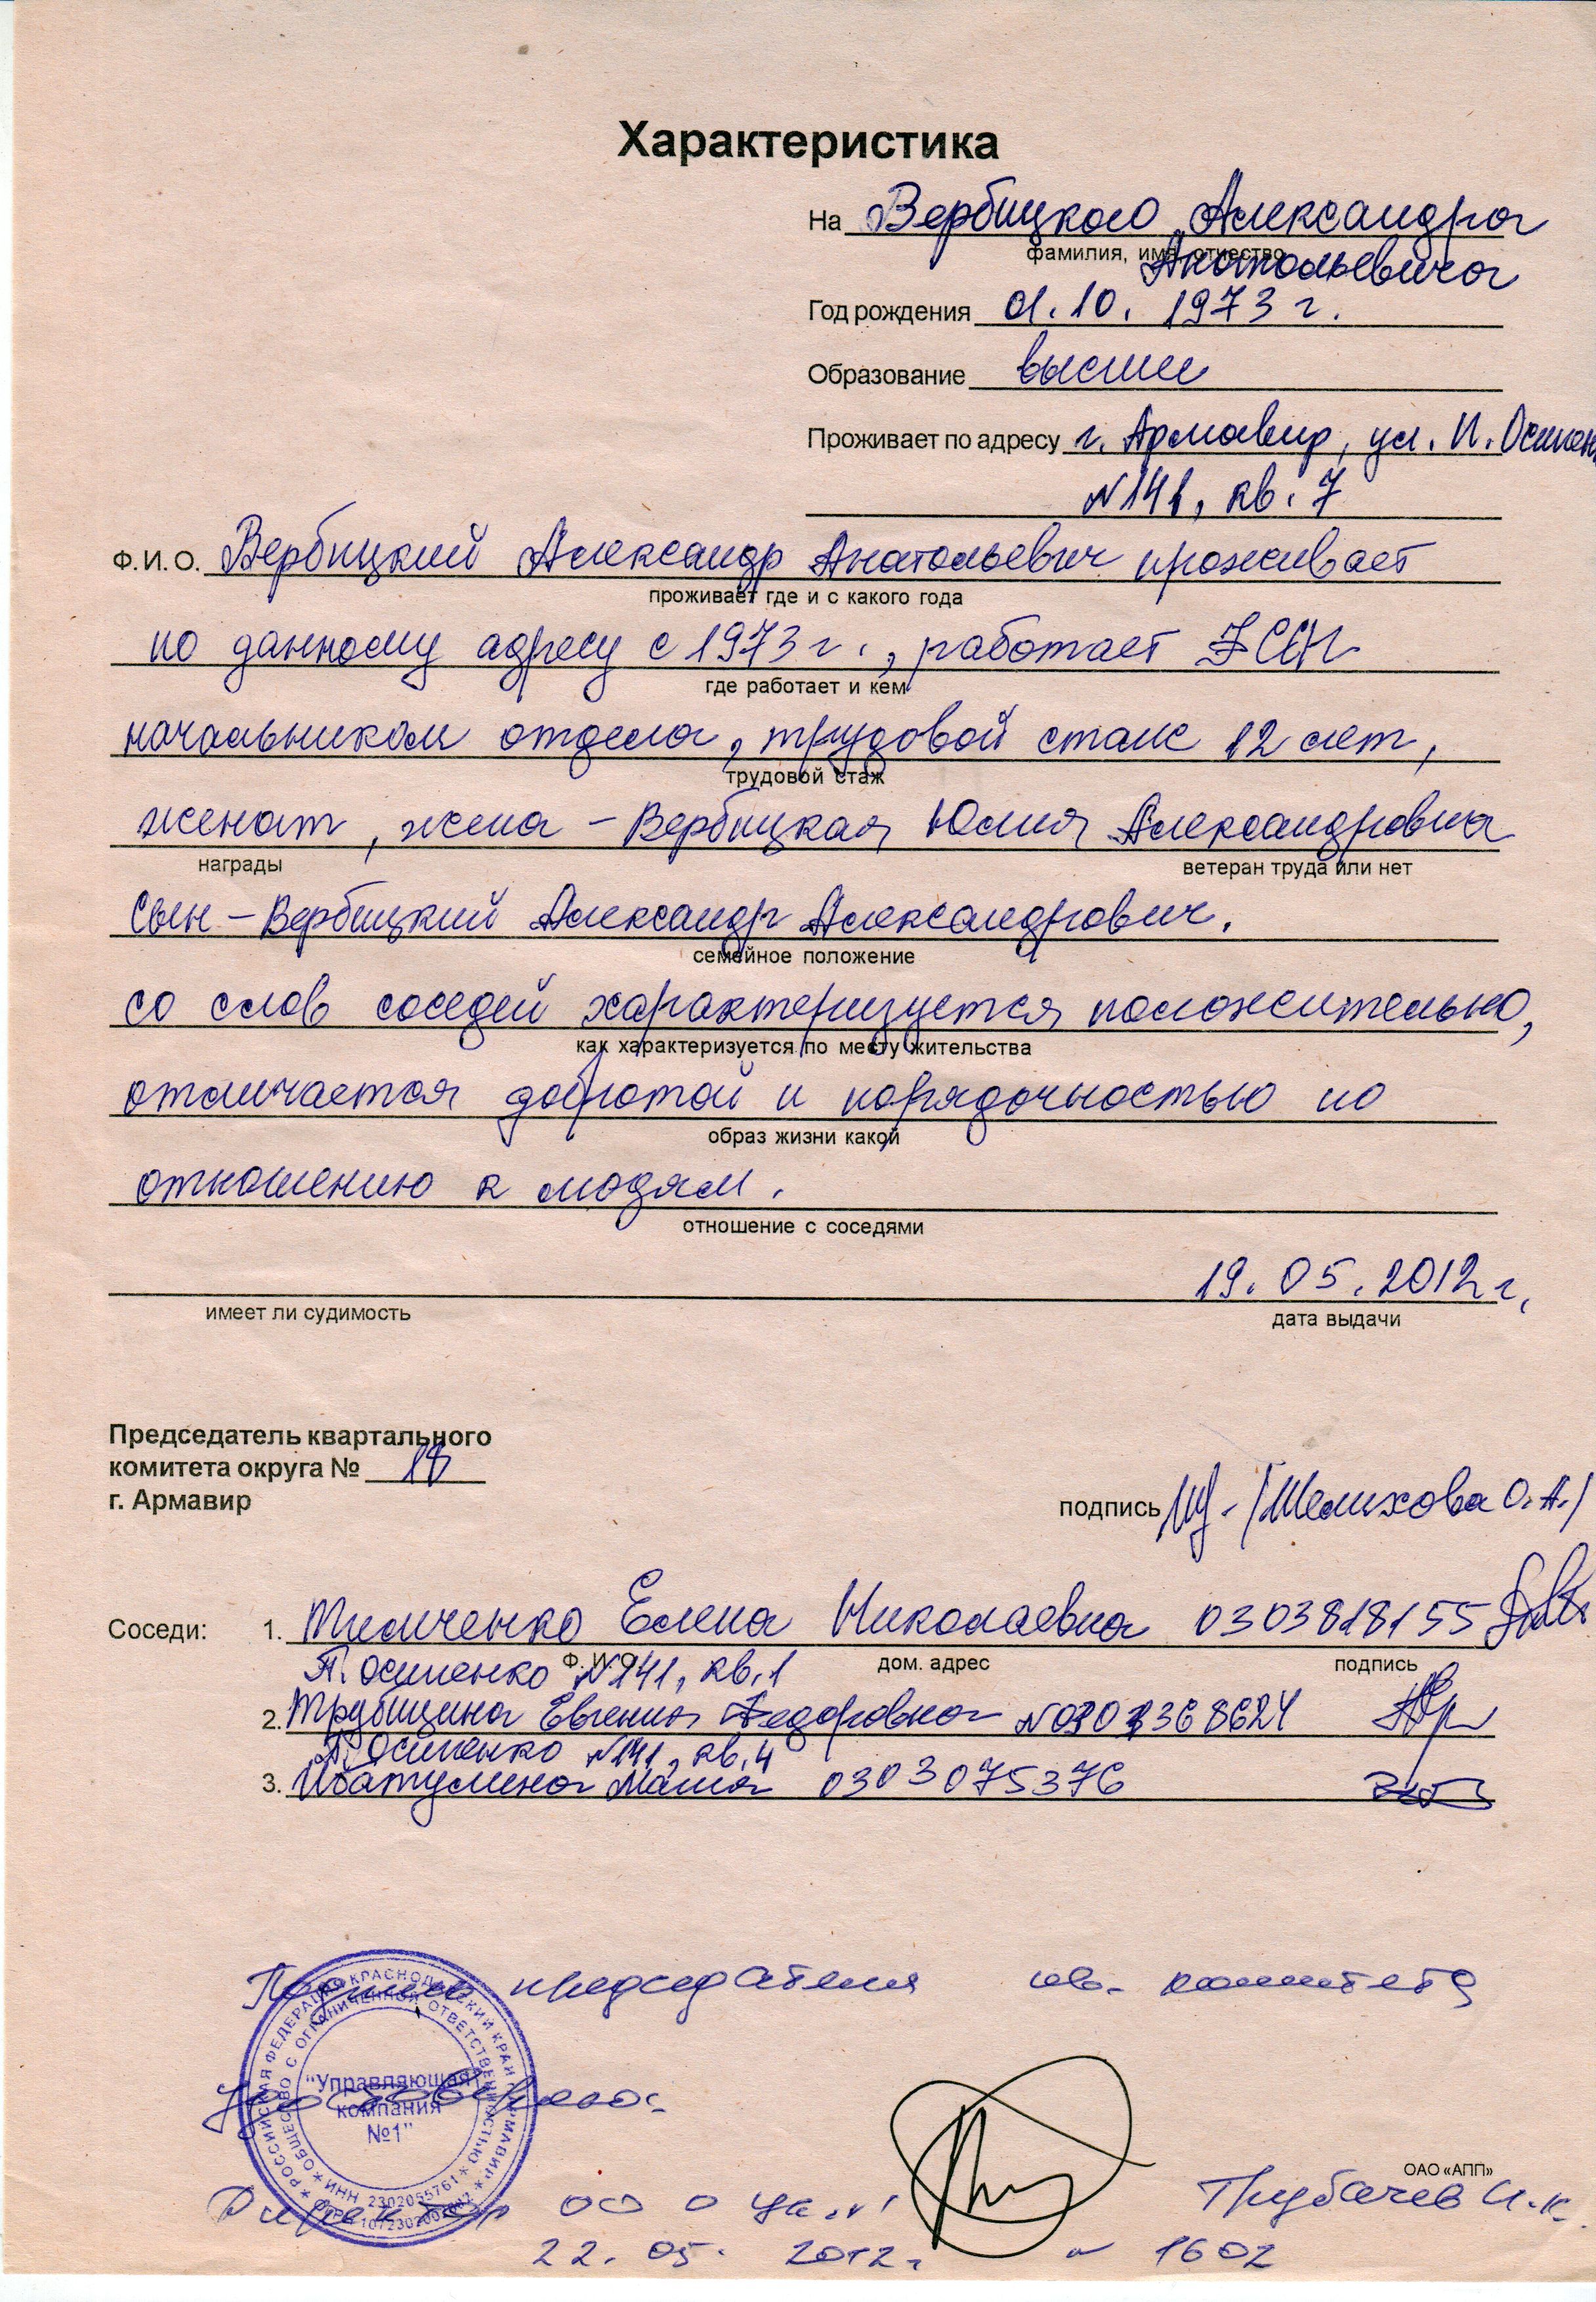 Характеристика
На Вербицкого Александра
фамилия, имя, отчество
Анатольевича
Год рождения 01.10. 1973 г.
Образование высшее
Проживает по адресу г. Армавир, ул. П. Осипен
№141, кв. 7
Ф. И. О. Вербицкий Александр Анатольевич проживает
проживает где и с какого года
по данному адресу с 1973 г., работает
где работает и кем
начальником отдела, трудовой стаж 12 лет,
трудовой стаж
женат, жена – Вербицкая Юлия Александровна
награды ветеран труда или нет
Сын – Вербицкий Александр Александрович.
семейное положение
со слов соседей характеризуется положительно,
как характеризуется по месту жительства
отличается добротой и порядочностью по
образ жизни какой
отношению к людям.
отношение с соседями
19.05.2012 г.
имеет ли судимость дата выдачи
Председатель квартального
комитета округа № 18
г. Армавир
подпись /Шелихова О.А./
Соседи: 1. Тимченко Елена Николаевна 0303818155
Ф. И. О. дом. адрес подпись
П. Осипенко №141, кв. 1
2. Трубицина Евгения Федоровна
П. Осипенко №141, кв. 4
3. Ибатулина 0303075376
Подпись председателя кв. комитета
удостоверяю.
РОССИЙСКАЯ ФЕДЕРАЦИЯ КРАСНОДАРСКИЙ КРАЙ Г. АРМАВИР
ОБЩЕСТВО С ОГРАНИЧЕННОЙ ОТВЕТСТВЕННОСТЬЮ
ИНН 2302055761
"Управляющая
компания
№1"
ОАО «АПП»
Директор ООО
22. 05. 2012 г. 1602